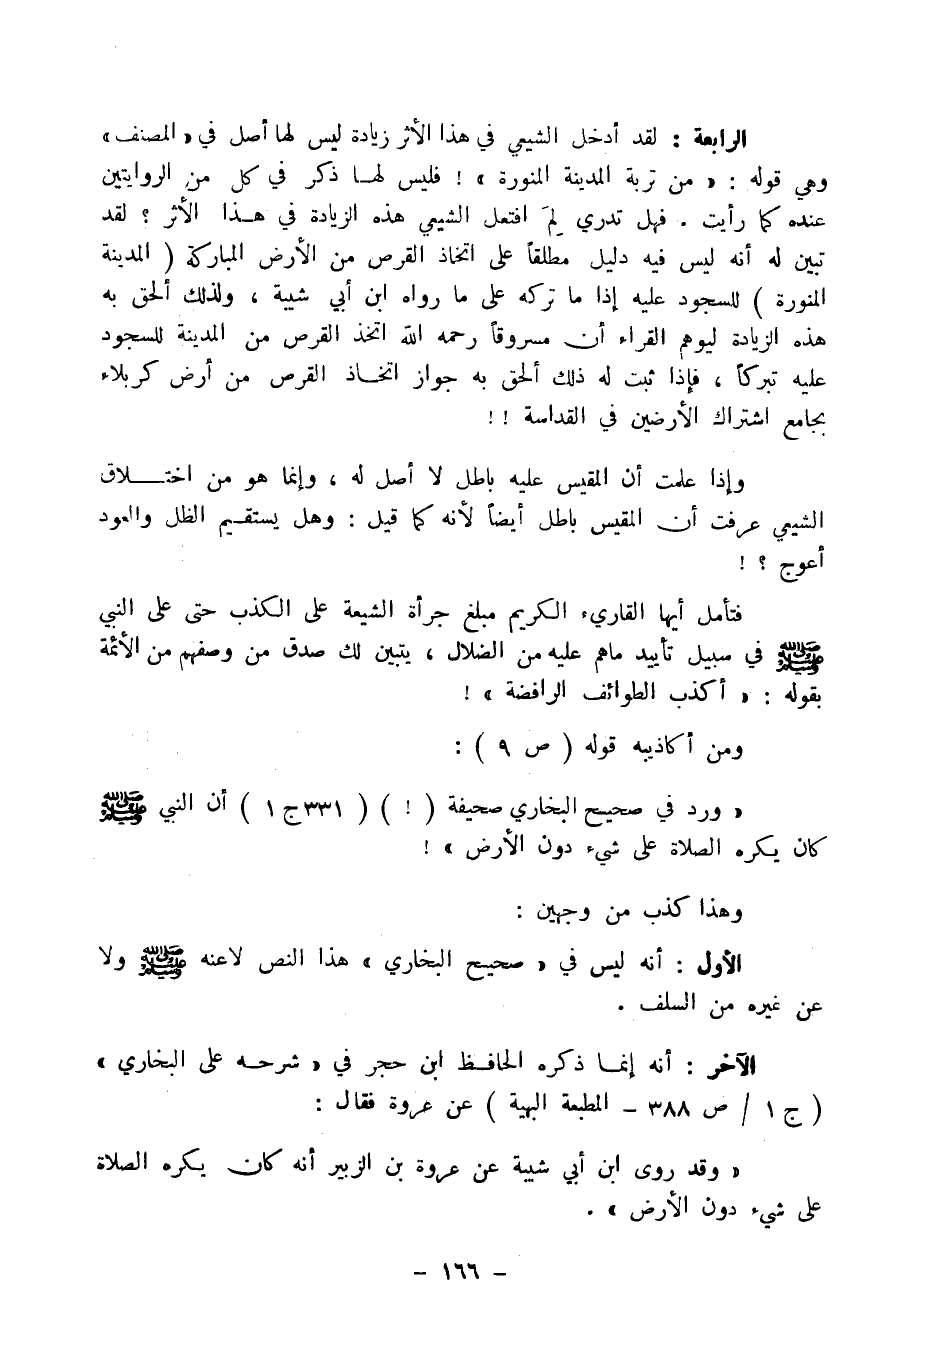 الرابعة : لقد أدخل الشيعي في هذا الأثر زيادة ليس لها أصل في « المصنف »
وهي قوله : « من تربة المدينة المنورة » ! فليس لهـا ذكر في كل من الروايتين
عنده كما رأيت . فهل تدري لِمَ افتعل الشيعي هذه الزيادة في هـذا الأثر ؟ لقد
تبين له أنه ليس فيه دليل مطلقاً على اتخاذ القرص من الأرض المباركة ( المدينة
المنورة ) للسجود عليه إذا ما تركه على ما رواه ابن أبي شيبة ، ولذلك ألحق به
هذه الزيادة ليوهم القراء أن مسروقاً رحمه الله اتخذ القرص من المدينة للسجود
عليه تبركاً ، فإذا ثبت له ذلك ألحق به جواز اتخـاذ القرص من أرض كربلاء
بجامع اشتراك الأرضين في القداسة ! !
وإذا علمت أن المقيس عليه باطل لا أصل له ، وإنما هو من اختـــلاق
الشيعي عرفت أن المقيس باطل أيضاً لأنه كما قيل : وهل يستقـيم الظل والعود
أعوج ؟ !
فتأمل أيها القاريء الكريم مبلغ جرأة الشيعة على الكذب حتى على النبي
ﷺ في سبيل تأييد ماهم عليه من الضلال ، يتبين لك صدق من وصفهم من الأئمة
بقوله : « أكذب الطوائف الرافضة » !
ومن أكاذيبه قوله ( ص ٩ ) :
« ورد في صحيح البخاري صحيفة ( ! ) ( ٣٣١ ج ١ ) أن النبي ﷺ
كان يكره الصلاة على شيء دون الأرض » !
وهذا كذب من وجهين :
الأول : أنه ليس في « صحيح البخاري » هذا النص لاعنه ﷺ ولا
عن غيره من السلف .
الآخر : أنه إنمـا ذكره الحافـظ ابن حجر في « شرحـه على البخاري »
( ج ١ / ص ٣٨٨ - المطبعة البهية ) عن عروة فقال :
« وقد روى ابن أبي شيبة عن عروة بن الزبير أنه كان يكره الصلاة
على شيء دون الأرض » .
- ١٦٦ -